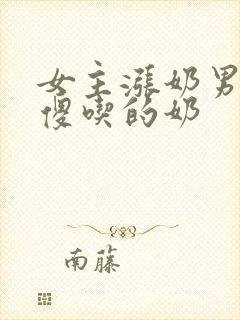 女主涨奶男
傻喫的奶
南藤